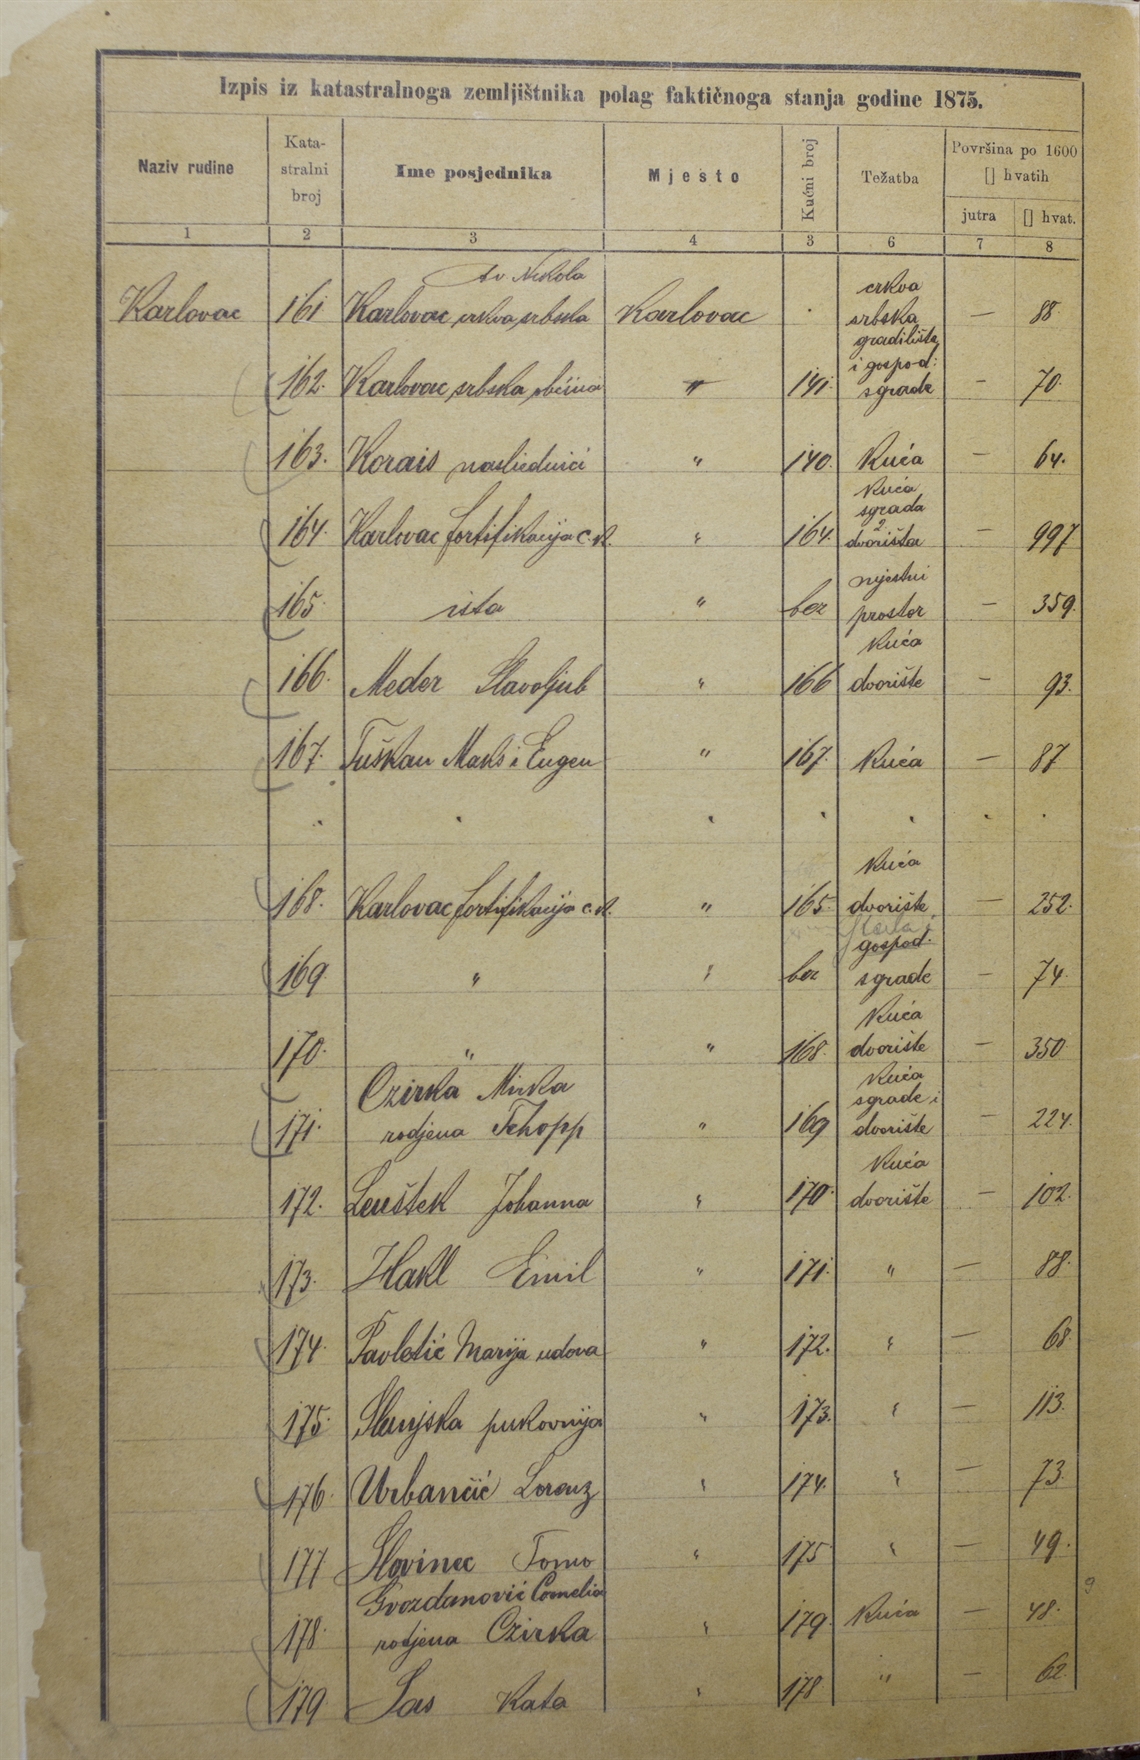 Izpis iz katastralnoga zemljištnika polag faktičnoga stanja godine 1875.
Naziv rudine Katastralni broj Ime posjednika Mjesto Kućni broj Težatba Površina po 1600 [] hvatih
jutra [] hvat.
1 2 3 4 3 6 7 8
sv Nikola
Karlovac 161 Karlovac crkva srbska Karlovac · crkva srbska — 88
162. Karlovac srbska občina " 141. gradilište i gospod: sgrade — 70.
163. Korais nasliednici " 140. Kuća — 64.
164. Karlovac fortifikacija c.k. " 164. Kuća sgrada 2 dvorišta — 997
165. ista " bez mjestni prostor — 359.
166. Meder Slavoljub " 166 Kuća dvorište — 93.
167. Tuškan Maks i Eugen " 167. Kuća — 87
" " " " " " "
168. Karlovac fortifikacija c.k. " 165. Kuća dvorište — 252.
169 " " bez gospod. sgrade — 74.
170. " " 168. Kuća dvorište — 350
Czirka Mirka
171. rodjena Tchopp " 169 Kuća sgrade i dvorište — 224.
172. Leuštek Johanna " 170. Kuća dvorište — 102.
173. Hakl Emil " 171. " — 88.
174. Pavletić Marija udova " 172. " — 68.
175. Slunjska pukovnija " 173. " — 113.
176. Urbančić Lorenz " 174. " — 73.
177 Slovinec Tomo " 175 " — 49.
Gvozdanović Cornelia
178. rodjena Czirka " 179. Kuća — 48.
179. Sas Kata " 178 " — 62.
9